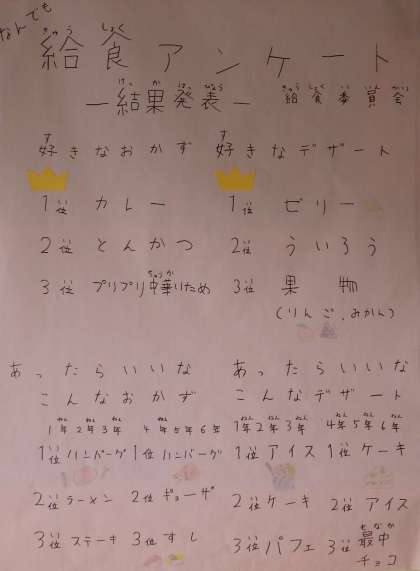 なんでも
給食アンケート
―結果発表― 給食委員会
好きなおかず
1位 カレー
2位 とんかつ
3位 プリプリ中華いため
好きなデザート
1位 ゼリー
2位 ういろう
3位 果物
(りんご、みかん)
あったらいいな
こんなおかず
1年2年3年
1位 ハンバーグ
2位 ラーメン
3位 ステーキ
4年5年6年
1位 ハンバーグ
2位 ギョーザ
3位 すし
あったらいいな
こんなデザート
1年2年3年
1位 アイス
2位 ケーキ
3位 パフェ
4年5年6年
1位 ケーキ
2位 アイス
3位 最中
チョコ